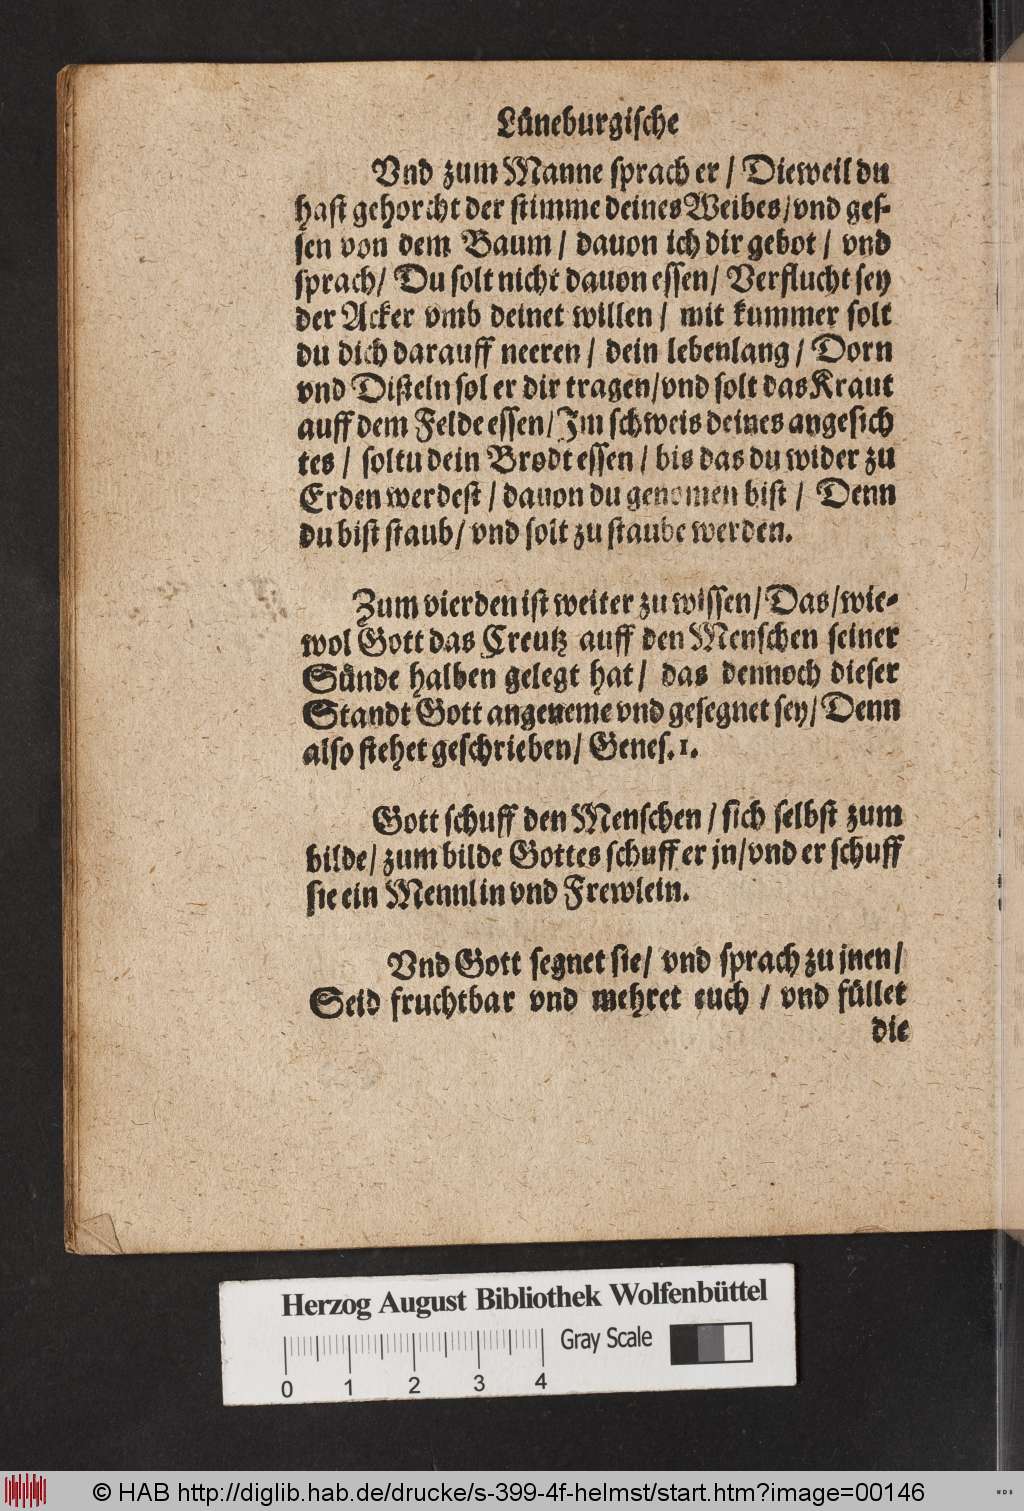 Lüneburgische
Vnd zum Manne sprach er / Dieweil du
hast gehorcht der stimme deines Weibes / vnd gef-
sen von dem Baum / dauon ich dir gebot / vnd
sprach / Du solt nicht dauon essen / Verflucht sey
der Acker vmb deinet willen / mit kummer solt
du dich darauff neeren / dein lebenlang / Dorn
vnd Disteln sol er dir tragen / vnd solt das Kraut
auff dem Felde essen / Im schweis deines angesich
tes / soltu dein Brodt essen / bis das du wider zu
Erden werdest / dauon du genomen bist / Denn
du bist staub / vnd solt zu staube werden.
Zum vierden ist weiter zu wissen / Das / wie-
wol Gott das Creutz auff den Menschen seiner
Sünde halben gelegt hat / das dennoch dieser
Standt Gott angeneme vnd gesegnet sey / Denn
also stehet geschrieben / Genes. 1.
Gott schuff den Menschen / sich selbst zum
bilde / zum bilde Gottes schuff er jn / vnd er schuff
sie ein Mennlin vnd Frewlein.
Vnd Gott segnet sie / vnd sprach zu jnen /
Seid fruchtbar vnd mehret euch / vnd füllet
die
Herzog August Bibliothek Wolfenbüttel
Gray Scale
0 1 2 3 4
© HAB http://diglib.hab.de/drucke/s-399-4f-helmst/start.htm?image=00146